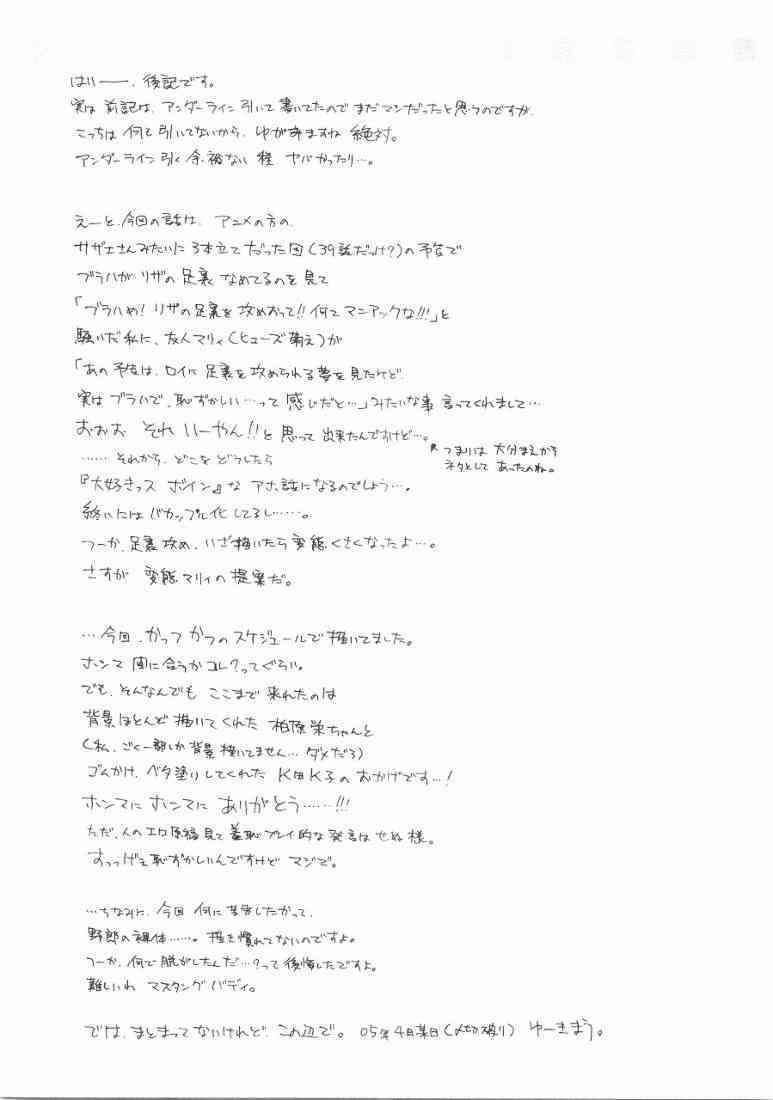 はいー、後記です。
実は前記は、アンダーライン引いて書いてたのでまだマシだったと思うのですが、
こっちは何も引いてないから、ゆがみますね 絶対。
アンダーライン引く余裕ない程 ヤバかったり…。
えーと、今回の話は、アニメの方の、
サザエさんみたいに3本立てだった回(39話だっけ?)の予告で
ブラハがリザの足裏なめてるのを見て
「ブラハめ!リザの足裏を攻めおって!!何てマニアックな!!!」と
騒いだ私に、友人マリィ(ヒューズ萌え)が
「あの予告は、ロイに足裏を攻められる夢を見たけど、
実はブラハで、恥ずかしい…って感じだと…」みたいな事言ってくれまして…
おぉお それいーやん!!と思って出来たんですけど…。
つまりは 大分まえから
ネタとして あったのね。
……それから、どこをどうしたら
『大好きっス ボイン』な アホ話になるのでしょう…。
終いにはバカップル化してるし……。
つーか、足裏攻め、いざ描いたら変態くさくなったよ…。
さすが 変態マリィの提案だ。
…今回、かっつかつのスケジュールで描いてました。
ホンマ間に合うかコレ?ってぐらい。
でも、そんなんでも ここまで来れたのは
背景ほとんど描いてくれた 柏原栄ちゃんと
(私、ごく一部しか背景描いてません…ダメだろ)
ゴムかけ、ベタ塗りしてくれた K田K子のおかげです…!
ホンマにホンマに ありがとう……!!!
ただ、人のエロ原稿見て羞恥プレイ的な発言はせぬ様。
すっっげぇ恥ずかしいんですけど マジで。
…ちなみに、今回 何に苦労したかって、
野郎の裸体……。描き慣れてないのですよ。
つーか、何で脱がしたんだ…?って後悔したですよ。
難しいわ マスタングバディ。
では、まとまってないけれど、この辺で。 05年4月某日(〆切破り) ゆーきまう。